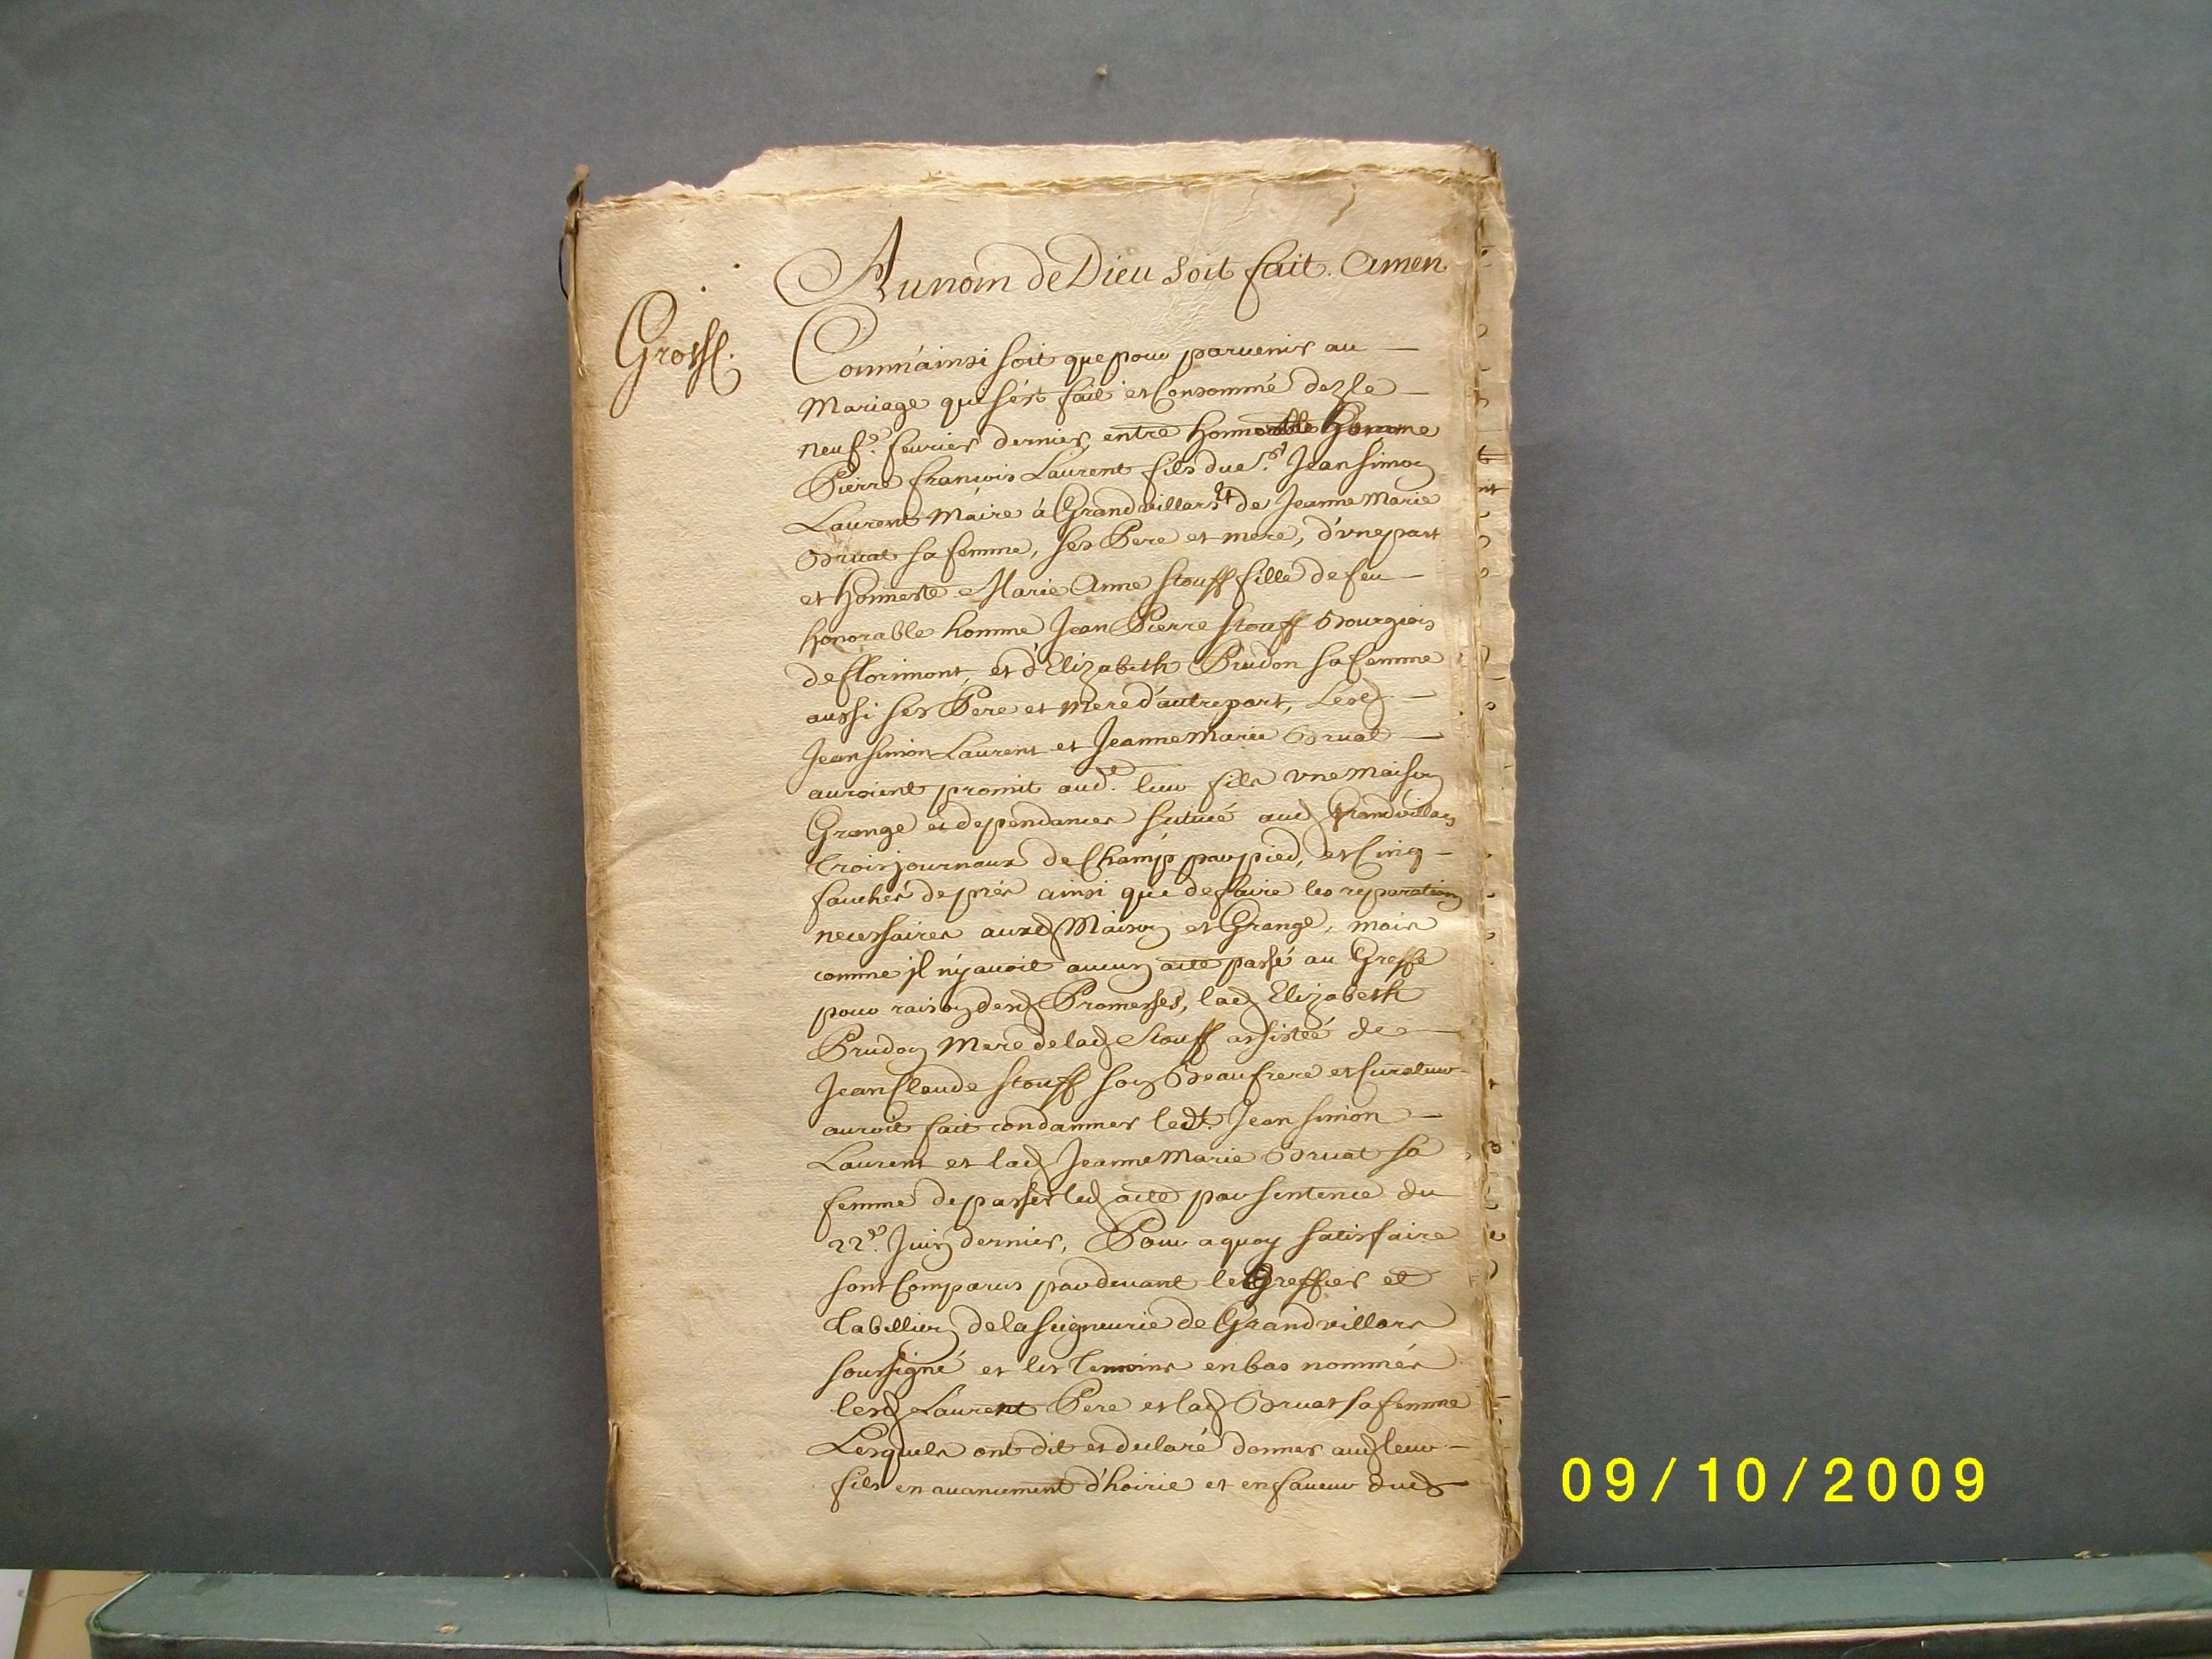 Au nom de Dieu soit fait. Amen
Grosse.
Comm'ainsi soit que pour parvenir au
Mariage qui s'ést fait et Consommé dez le
neufe. feurier dernier, entre honnorable Homme
Pierre francois Laurent fils du Sr. Jean Simon
Laurent Maire á Grandvillars et de Jeanne Marie
Bruat sa femme, ses Pere et mere, d'vne part
et Honneste Marie Anne Stouff fille de feu
honorable homme Jean Pierre Stouff Bourgeois
de florimont, et d'Elizabeth Prudon sa femme
aussi ses Pere et Mere d'autre part, Lesd
Jean Simon Laurent et Jeanne Marie Bruat
auroient promit aud. leur fils vne Maison
Grange et dependances scituée aud Grandvillars
trois journaux de Champ par pied, et Cinq
fauchés de prés ainsi que de faire les reparations
necessaires auxd Maison et Grange, mais
comme jl n'y avoit aucun acte passé au Greffe
pour raison desd Promesses, lad Elizabeth
Prudon Mere de lad Stouff assistée de
Jean Claude Stouff son Beaufrere et Curateur
auroit fait condamner ledt. Jean Simon
Laurent et lad Jeanne Marie Bruat sa
femme de passer led acte par sentence du
22e. Juin dernier, Pour a quoy satisfaire
sont Comparus pardevant le Greffier et
tabellion de la seigneurie de Grandvillars
soussigné et les temoins en bas nommés
lesd Laurent Pere et lad Bruat sa femme
Lesquels ont dit et declaré donner aud leur
fils en avancement d'hoirie et en faveur dud
09/10/2009